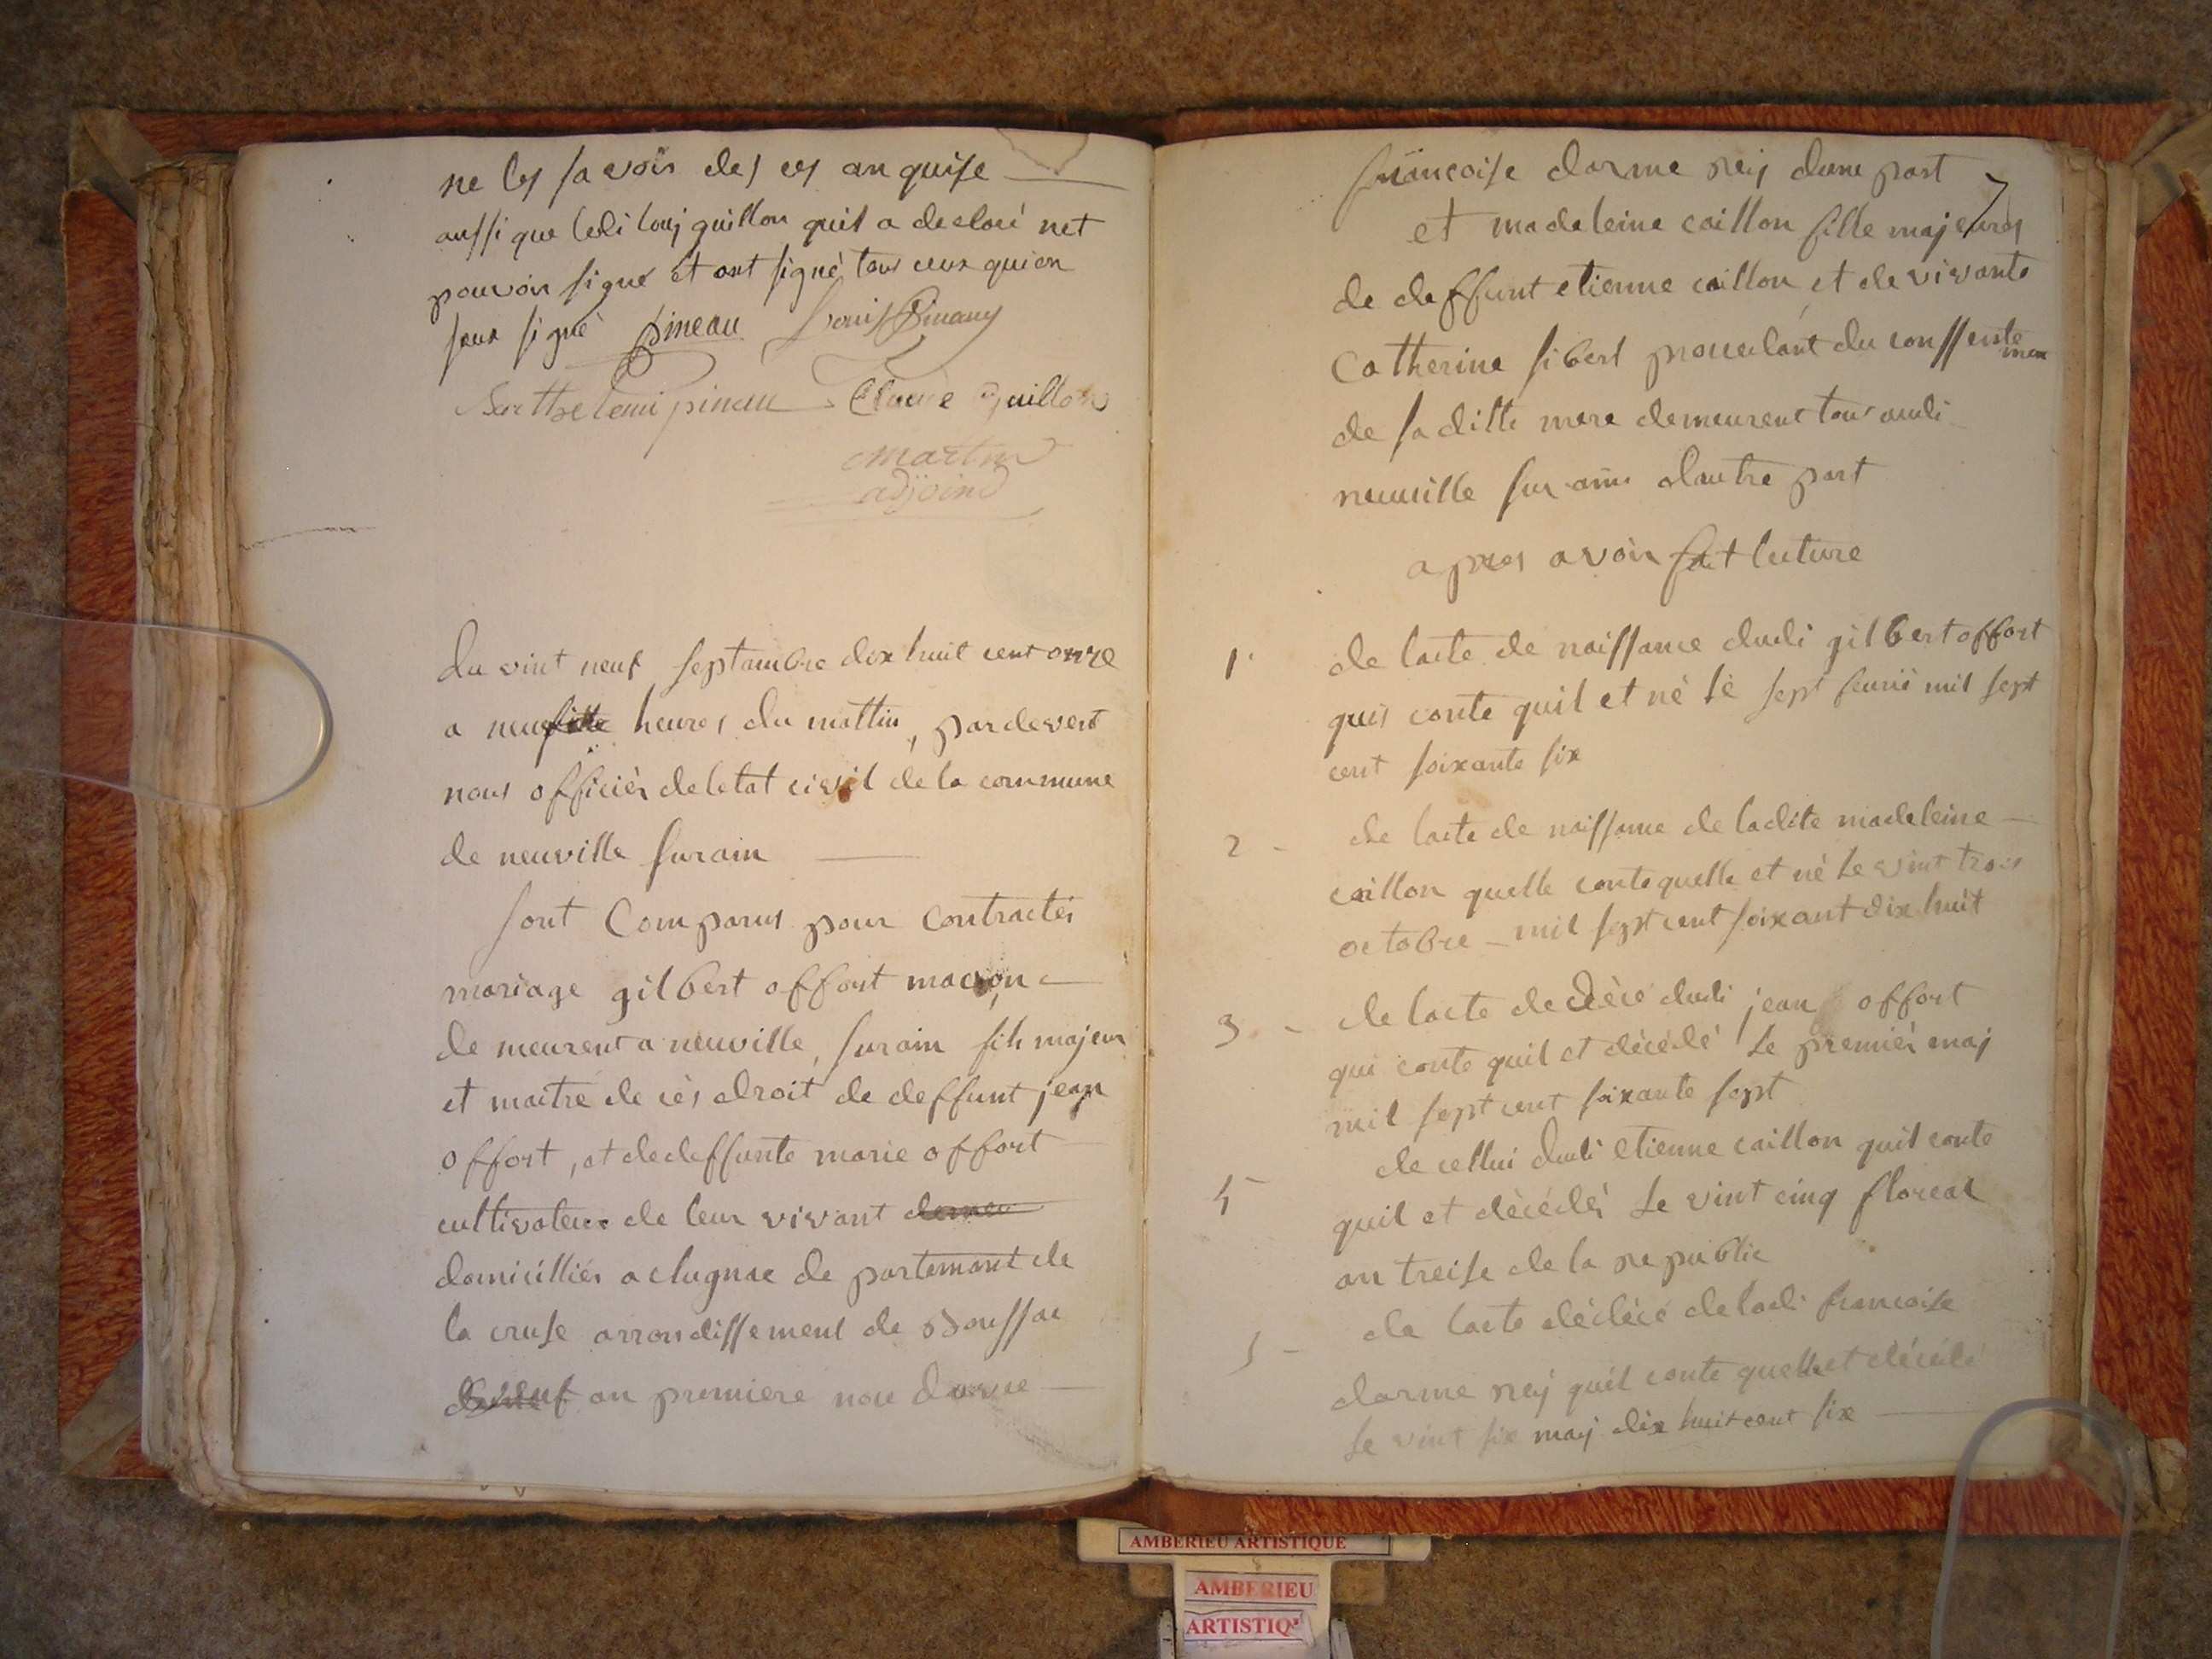 ne les savoir des ces an quise
aussi que ledi louj guillon quil a declaré net
pouvoir signé et ont signé tous ceux qui on
seux signé pineau Louis Pinaux
Barthelemi pineau Claude Guillon
martin
adjoind
du vint neuf septambre dix huit cent onze
a neuf heures du mattin, pardevent
nous officier de letat civil de la commune
de neuville surain
sont Comparus pour Contractér
mariage gilbert offort macon
demeurent a neuville, surain fils majeur
et maitre de cès droit de deffunt jean
offort, et de deffunte marie offort
cultivateur de leur vivant demeu
domicilliér a clugnac de partemant de
la cruse arrondissement de Boussac
veuf an premiere nou davve
francoise darme reij dune part
7
et madeleine caillon fille majeures
de deffunt etienne caillon et de vivante
Catherine sibert proceulant du conssente
men
de sa ditte mere demeurent tous audi
neuville sur ains dautre part
apres avoir fait lecture
1 de lacte de naissance dudi gilbert offort
quis conte quil et né le sept feurié mil sept
cent soixante six
2 - de lacte de naissance de ladite madeleine
caillon quelle conte quelle et né le vint trois
octobre mil sept cent soixant dix huit
3 - de lacte de dècé dudi jean offort
qui conte quil et dècédé le premiér maj
mil sept cent soixante sept
4 de cellui dudi etienne caillon quil conte
quil et dècédé le vint cinq floreal
an treise de la republic
5 - de lacte dédécé de ladi francoise
darme reij quil conte quelle et décédé
le vint six maij dix huit cent six
AMBERIEU ARTISTIQUE
AMBERIEU
ARTISTIQ